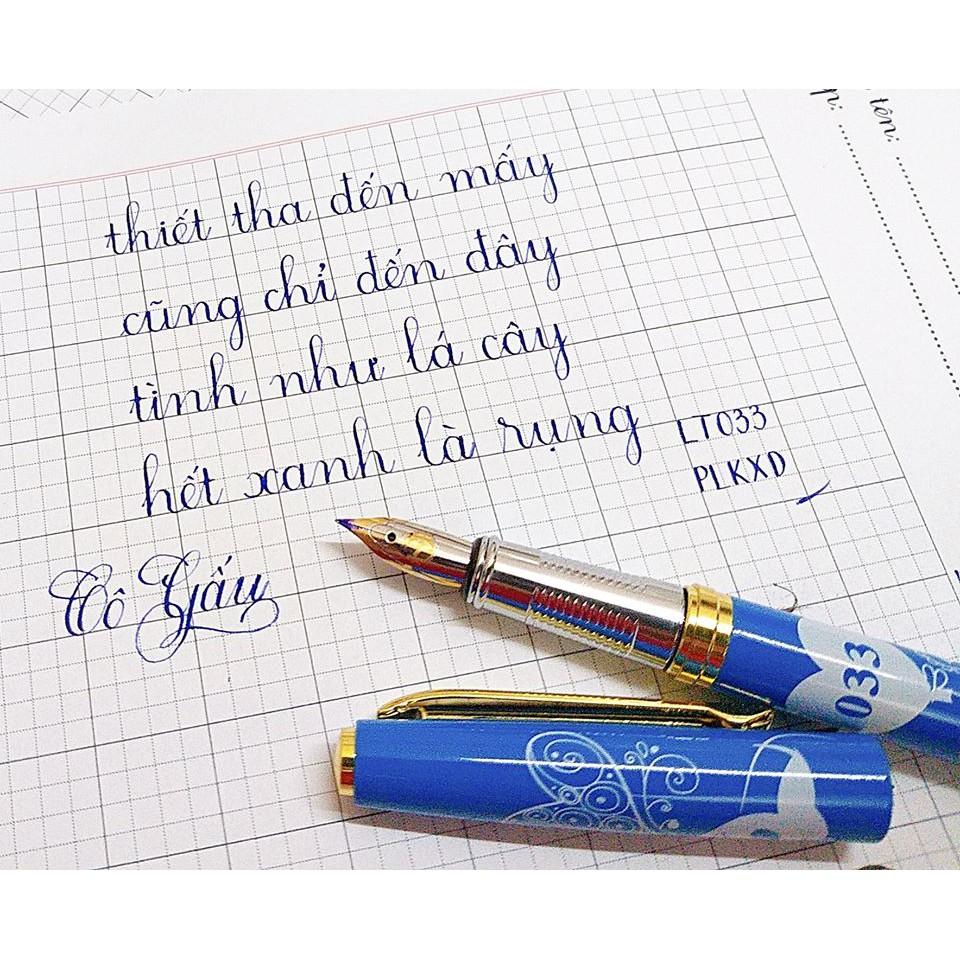 thiết tha đến mấy
cũng chỉ đến đây
tình như lá cây
hết xanh là rụng
LT033
PLKXD
Cô Gấu
033
tên: